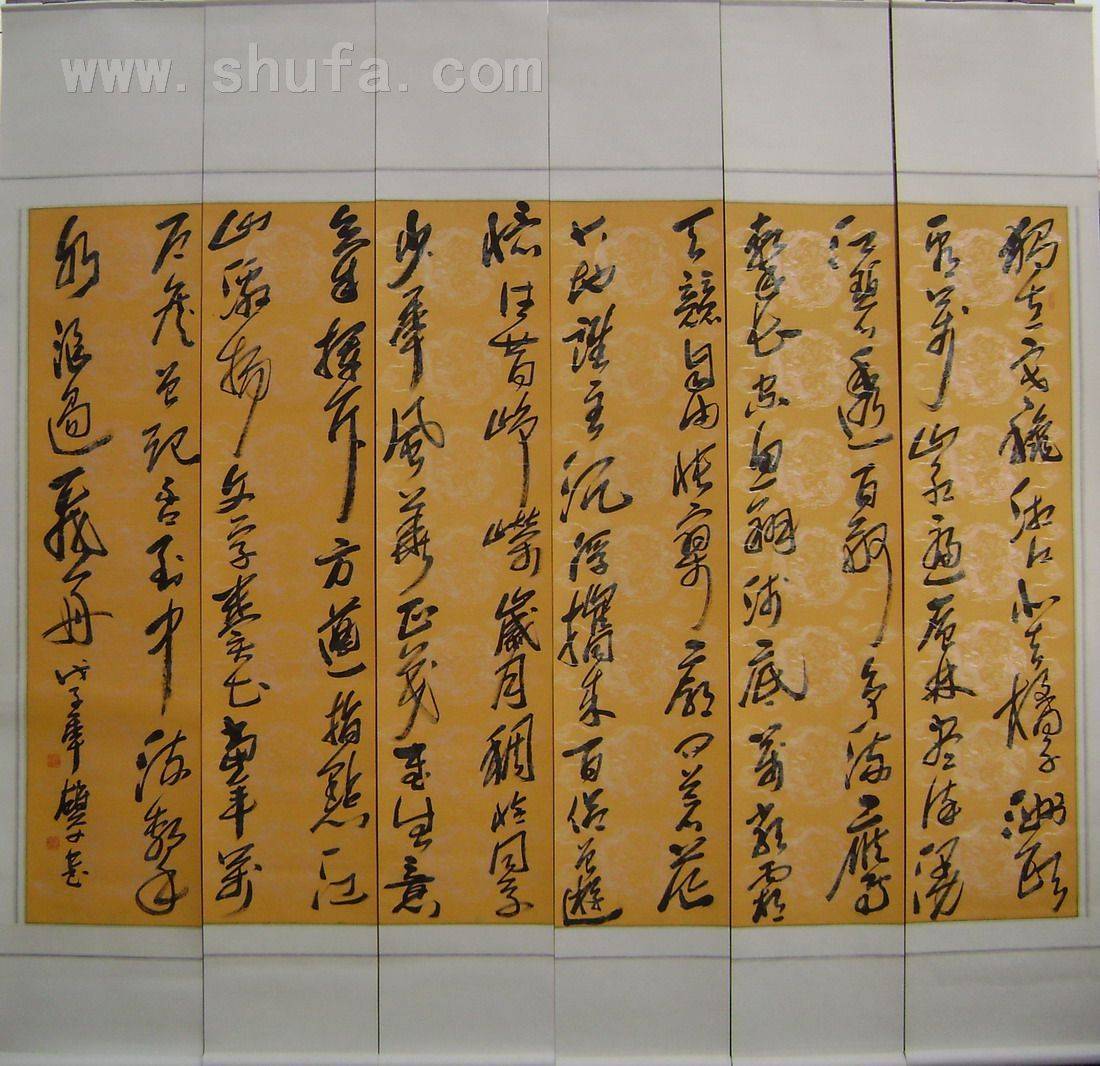 www.shufa.com
獨立寒秋湘江北去橘子洲頭
看萬山紅遍層林盡染漫
江碧透百舸爭流鷹
擊長空魚翔淺底萬類霜
天競自由悵寥廓問蒼茫
大地誰主沉浮攜來百侶曾遊
憶往昔崢嶸歲月稠恰同學
少年風華正茂書生意
氣揮斥方遒指點江
山激揚文字糞土當年萬
戶侯曾記否到中流擊
水浪遏飛舟 戊子年 書